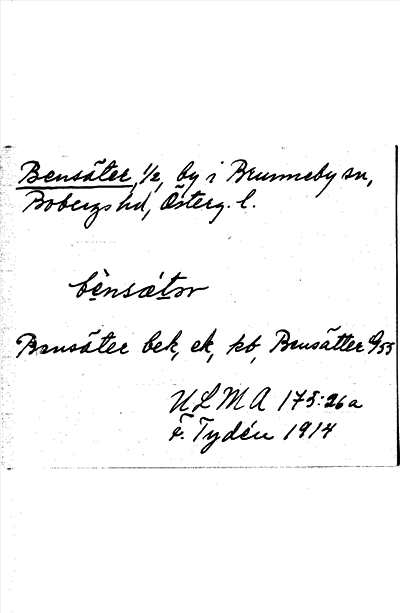 Bensäter, 1/2, by i Brunneby sn,
Bobergs hd, Österg. l.
bènsætər
Bensäter bek, ek, kb, Bensätter
ULMA 175:26a
F. Tydén 1914